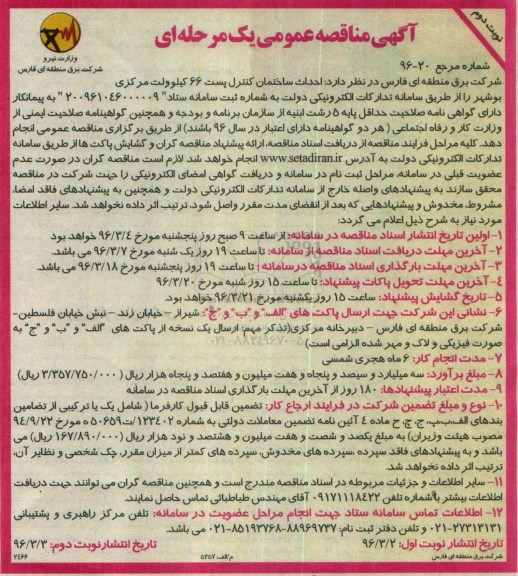 نوبت دوم
آگهی مناقصه عمومی یک مرحله ای
وزارت نیرو
شرکت برق منطقه ای فارس
شماره مرجع ۲۰-۹۶
شرکت برق منطقه ای فارس در نظر دارد: احداث ساختمان کنترل پست ۶۶ کیلوولت مرکزی
بوشهر را از طریق سامانه تدارکات الکترونیکی دولت به شماره ثبت سامانه ستاد" ۲۰۰۹۶۱۰۴۶۰۰۰۰۰۹ " به پیمانکار
دارای گواهی نامه صلاحیت حداقل پایه ۵ رشت ابنیه از سازمان برنامه و بودجه و همچنین گواهینامه صلاحیت ایمنی از
وزارت کار و رفاه اجتماعی ( هر دو گواهینامه دارای اعتبار در سال ۹۶ باشند) از طریق برگزاری مناقصه عمومی انجام
دهد. کلیه مراحل فرایند مناقصه از دریافت اسناد مناقصه، ارائه پیشنهاد مناقصه گران و گشایش پاکت ها از طریق سامانه
تدارکات الکترونیکی دولت به آدرس www.setadiran.ir انجام خواهد شد. لازم است مناقصه گران در صورت عدم
عضویت قبلی در سامانه، مراحل ثبت نام در سامانه و دریافت گواهی امضای الکترونیکی را جهت شرکت در مناقصه
محقق سازند به پیشنهادهای واصله خارج از سامانه تدارکات الکترونیکی دولت و همچنین به پیشنهادهای فاقد امضا،
مشروط، مخدوش و پیشنهادهایی که بعد از انقضای مدت مقرر واصل شود، ترتیب اثر داده نخواهد شد. سایر اطلاعات
مورد نیاز به شرح ذیل اعلام می گردد:
۱- اولین تاریخ انتشار اسناد مناقصه در سامانه: از ساعت ۹ صبح روز پنجشنبه مورخ ۹۶/۳/۴ خواهد بود
۲- آخرین مهلت دریافت اسناد مناقصه از سامانه: تا ساعت ۱۹ روز یک شنبه مورخ ۹۶/۳/۷ می باشد.
۳- آخرین مهلت بارگذاری اسناد مناقصه در سامانه : تا ساعت ۱۹ روز پنجشنبه مورخ ۹۶/۳/۱۸ می باشد.
۴- آخرین مهلت تحویل پاکات پیشنهاد: تا ساعت ۱۵ روز شنبه مورخ ۹۶/۳/۲۰
۵- تاریخ گشایش پیشنهاد: ساعت ۱۵ روز یکشنبه مورخ ۹۶/۳/۲۱ خواهد بود.
۶- نشانی این شرکت جهت ارسال پاکت های "الف" و "ب" و "ج": شیراز – خیابان زند – نبش خیابان فلسطین-
شرکت برق منطقه ای فارس – دبیرخانه مرکزی(تذکر مهم: ارسال یک نسخه از پاکت های "الف" و "ب" و "ج" به
صورت فیزیکی و لاک و مهر شده الزامی است)
۷- مدت انجام کار: ۶ ماه هجری شمسی
۸- مبلغ برآورد: سه میلیارد و سیصد و پنجاه و هفت میلیون و هفتصد و پنجاه هزار ریال (۳/۳۵۷/۷۵۰/۰۰۰ ریال)
۹- مدت اعتبار پیشنهادها: ۱۸۰ روز از آخرین مهلت بارگذاری اسناد مناقصه در سامانه
۱۰- نوع و مبلغ تضمین شرکت در فرایند ارجاع کار: تضمین قابل قبول کارفرما ( شامل یک یا ترکیبی از تضامین
بندهای الف،ب،پ، ج، چ، ح ماده ۴ آئین نامه تضمین معاملات دولتی به شماره ۱۲۳۴۰۲/ت۵۰۶۵۹ه مورخ ۹۴/۹/۲۲
مصوب هیئت وزیران) به مبلغ یکصد و شصت و هفت میلیون و هشتصد و نود هزار ریال (۱۶۷/۸۹۰/۰۰۰ ریال) می
باشد و به پیشنهادهای فاقد سپرده، سپرده های مخدوش، سپرده های کمتر از میزان مقرر، چک شخصی و نظایر آن،
ترتیب اثر داده نخواهد شد.
۱۱- سایر اطلاعات و جزئیات مربوطه در اسناد مناقصه مندرج است و همچنین مناقصه گران می توانند جهت دریافت
اطلاعات بیشتر با شماره تلفن ۰۹۱۷۱۱۱۸۴۲۲ آقای مهندس طباطبائی تماس حاصل نمایند.
۱۲- اطلاعات تماس سامانه ستاد جهت انجام مراحل عضویت در سامانه: تلفن مرکز راهبری و پشتیبانی
۰۲۱-۲۷۳۱۳۱۳۱ و تلفن دفتر ثبت نام: ۸۸۹۶۹۷۳۷-۰۲۱-۸۵۱۹۳۷۶۸ می باشد.
تاریخ انتشار نوبت اول: ۹۶/۳/۲ تاریخ انتشار نوبت دوم: ۹۶/۳/۳
شرکت برق منطقه ای فارس م/الف ۵۲۵۷ ۲۴۶۶